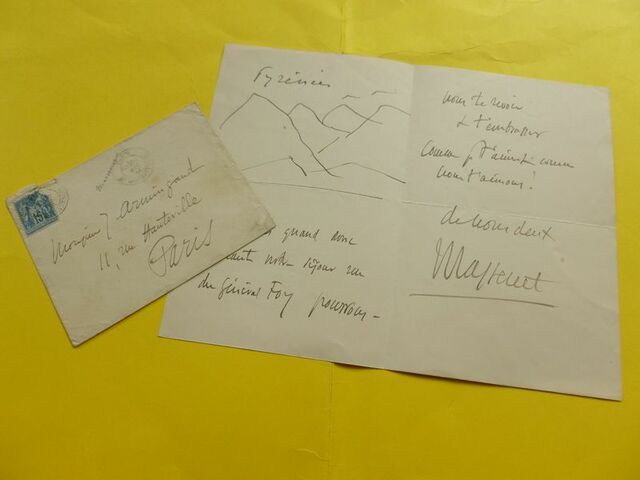 Monsieur J Armingaud
11, rue Hauteville
Paris
15
Pyrénées
quand donc
notre séjour rue
du général Foy pourrons-
nous te revoir
& t'embrasser
comme je t'aime & comme
nous t'aimons!
de nous deux
Massenet